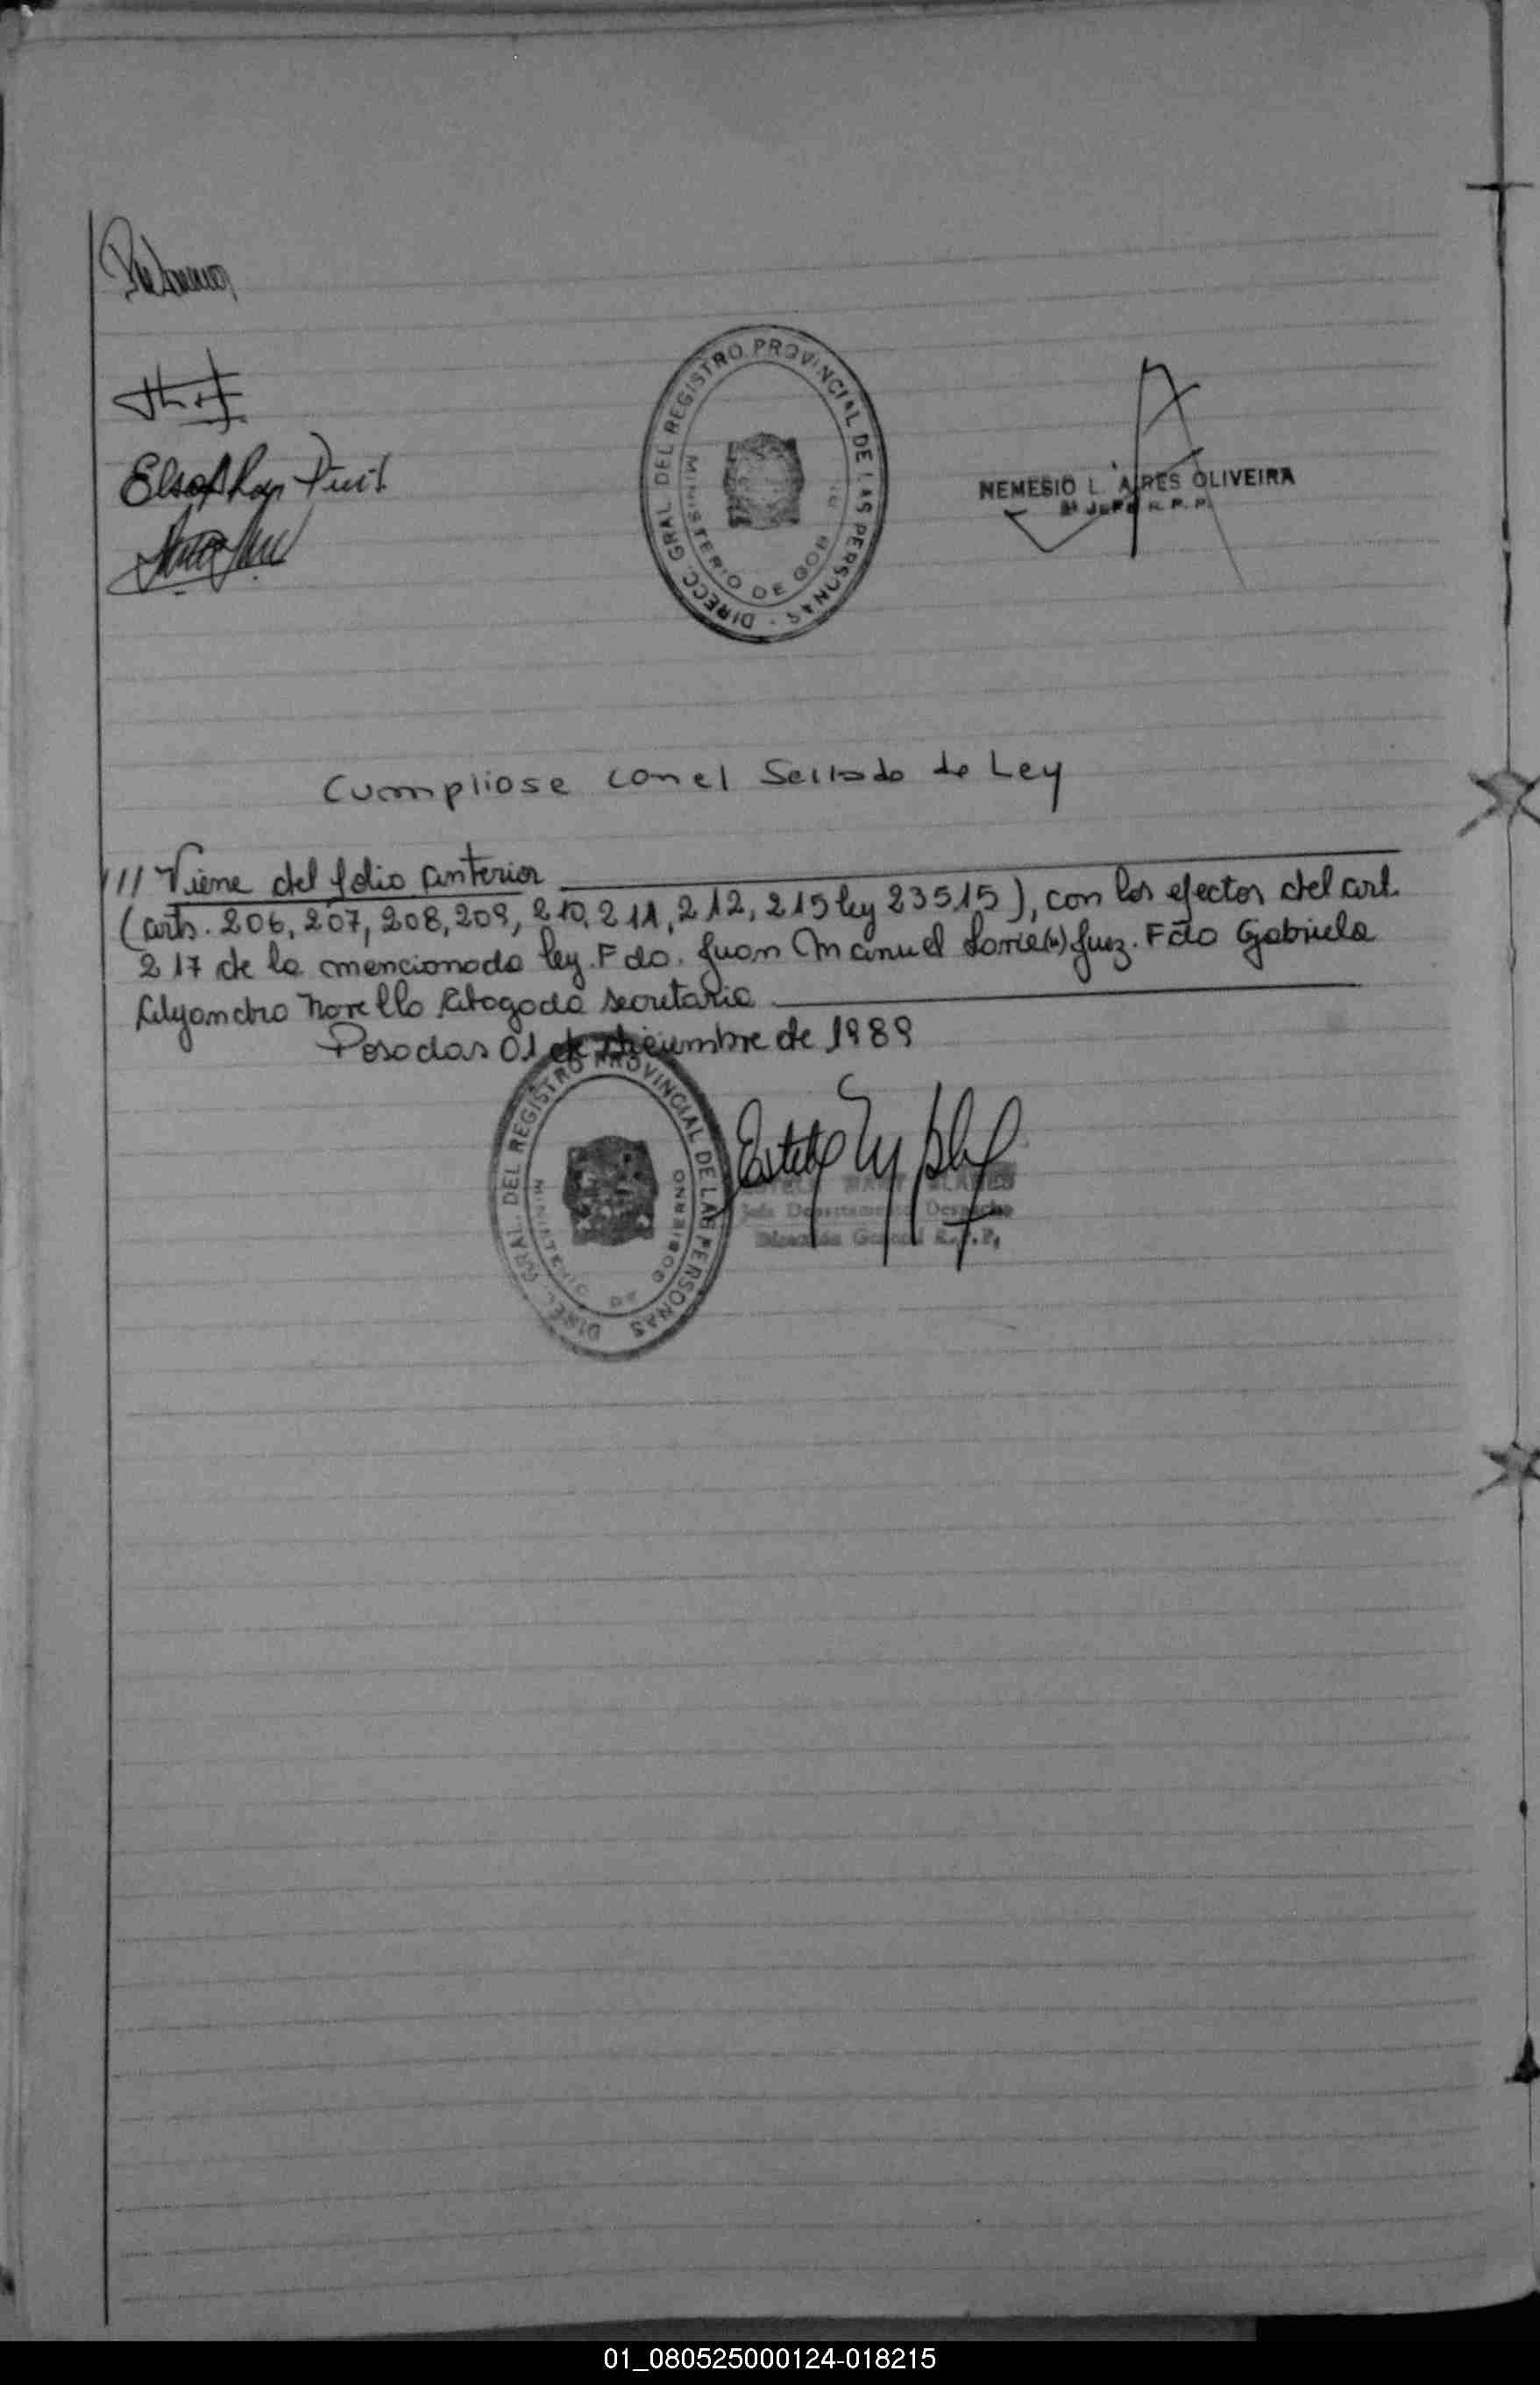 DIRECC. GRAL. DEL REGISTRO PROVINCIAL DE LAS PERSONAS -
MINISTERIO DE GOB
NEMESIO L. AIRES OLIVEIRA
JEFE R. P. P.
Cumpliose con el Sellado de Ley
/// Viene del folio anterior
(arts. 206, 207, 208, 209, 210, 211, 212, 215 ley 23515), con los efectos del art.
217 de la mencionada ley. Fdo. Juan Manuel Juez. Fdo Gabriela
Alejandra Abogada secretaria
Posadas 01 de diciembre de 1989
DIREC. GRAL. DEL REGISTRO PROVINCIAL DE LAS PERSONAS
MINISTERIO DE GOBIERNO
Jefe Departamento Despacho
Dirección General R.P.P.
01_080525000124-018215